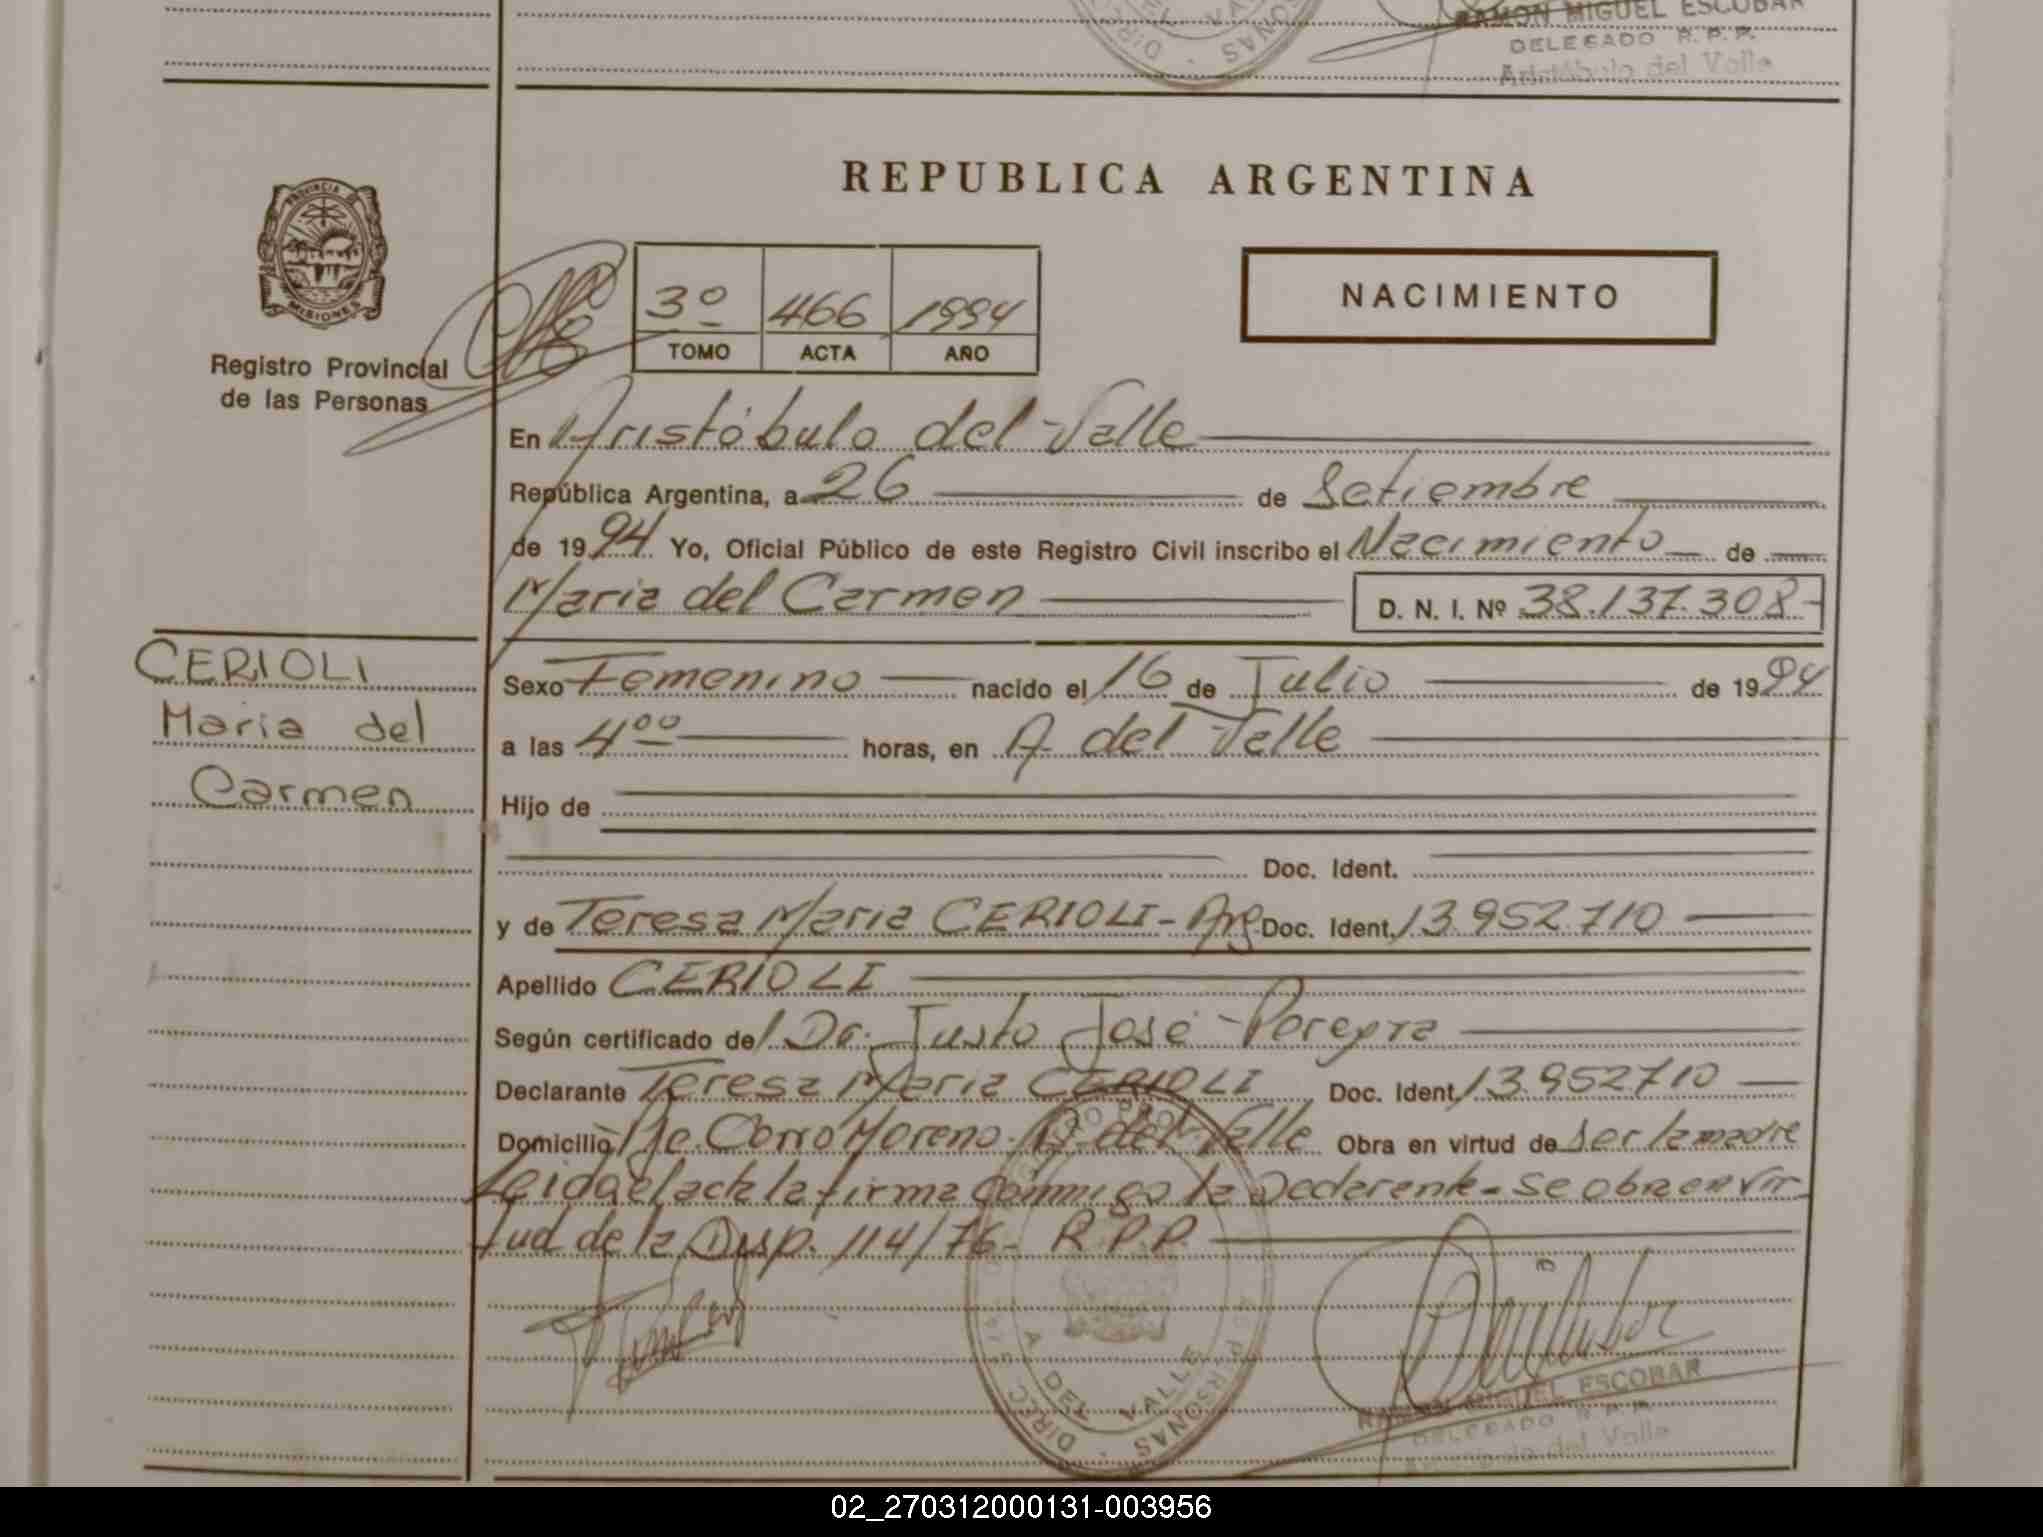 RAMON MIGUEL ESCOBAR
DELEGADO R.P.P.
Aristóbulo del Valle
REPUBLICA ARGENTINA
PROVINCIA DE
MISIONES
Registro Provincial
de las Personas
3º 466 1994
TOMO ACTA AÑO
NACIMIENTO
En Aristóbulo del Valle
República Argentina, a 26 de Setiembre
de 1994 Yo, Oficial Público de este Registro Civil inscribo el Nacimiento de
Maria del Carmen D. N. I. Nº 38.137.308.-
CERIOLI
Maria del
Carmen
Sexo Femenino nacido el 16 de Julio de 1994
a las 4⁰⁰ horas, en A. del Valle
Hijo de
Doc. Ident.
y de Teresa Maria CERIOLI - Arg. Doc. Ident. 13.952.710
Apellido CERIOLI
Según certificado del Dr. Justo José Pereyra
Declarante Teresa Maria CERIOLI Doc. Ident. 13.952710
Domicilio Pje. Corro Moreno. A. del Valle Obra en virtud de ser la madre
Leida el acta la firma conmigo la Declarante - se obra en vir-
tud de la Disp. 114/76- R.P.P.
A. DEL VALLE
DIREC. PERSONAS
RAMON MIGUEL ESCOBAR
DELEGADO R.P.P.
Aristóbulo del Valle
02_270312000131-003956